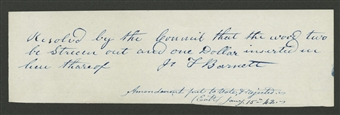 Resolved by the Council that the word two
be Stricen out and one Dollar inserted in
lieu thereof J F Barnett
Amendment put to Vote & rejected
Jany 15th 42